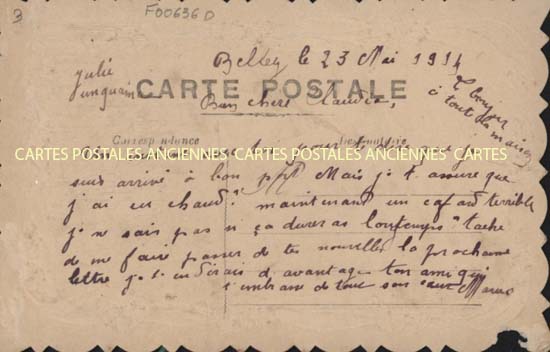 3
F00636 D
Belley le 23 Mai 1914
Julie
CARTE POSTALE
Bien chers
à toute la maison
Correspondance
CARTES POSTALES ANCIENNES CARTES POSTALES ANCIENNES CARTES
suis arrivé à bon Mais je t assure que
j'ai eu chaud maintenant un cafard terrible
je ne sais pas si ça durera longtemps tache
de me faire passer de tes nouvelles la prochaine
lettre je t'en dirais d avantage ton ami qui
t'embrasse de tout son cœur